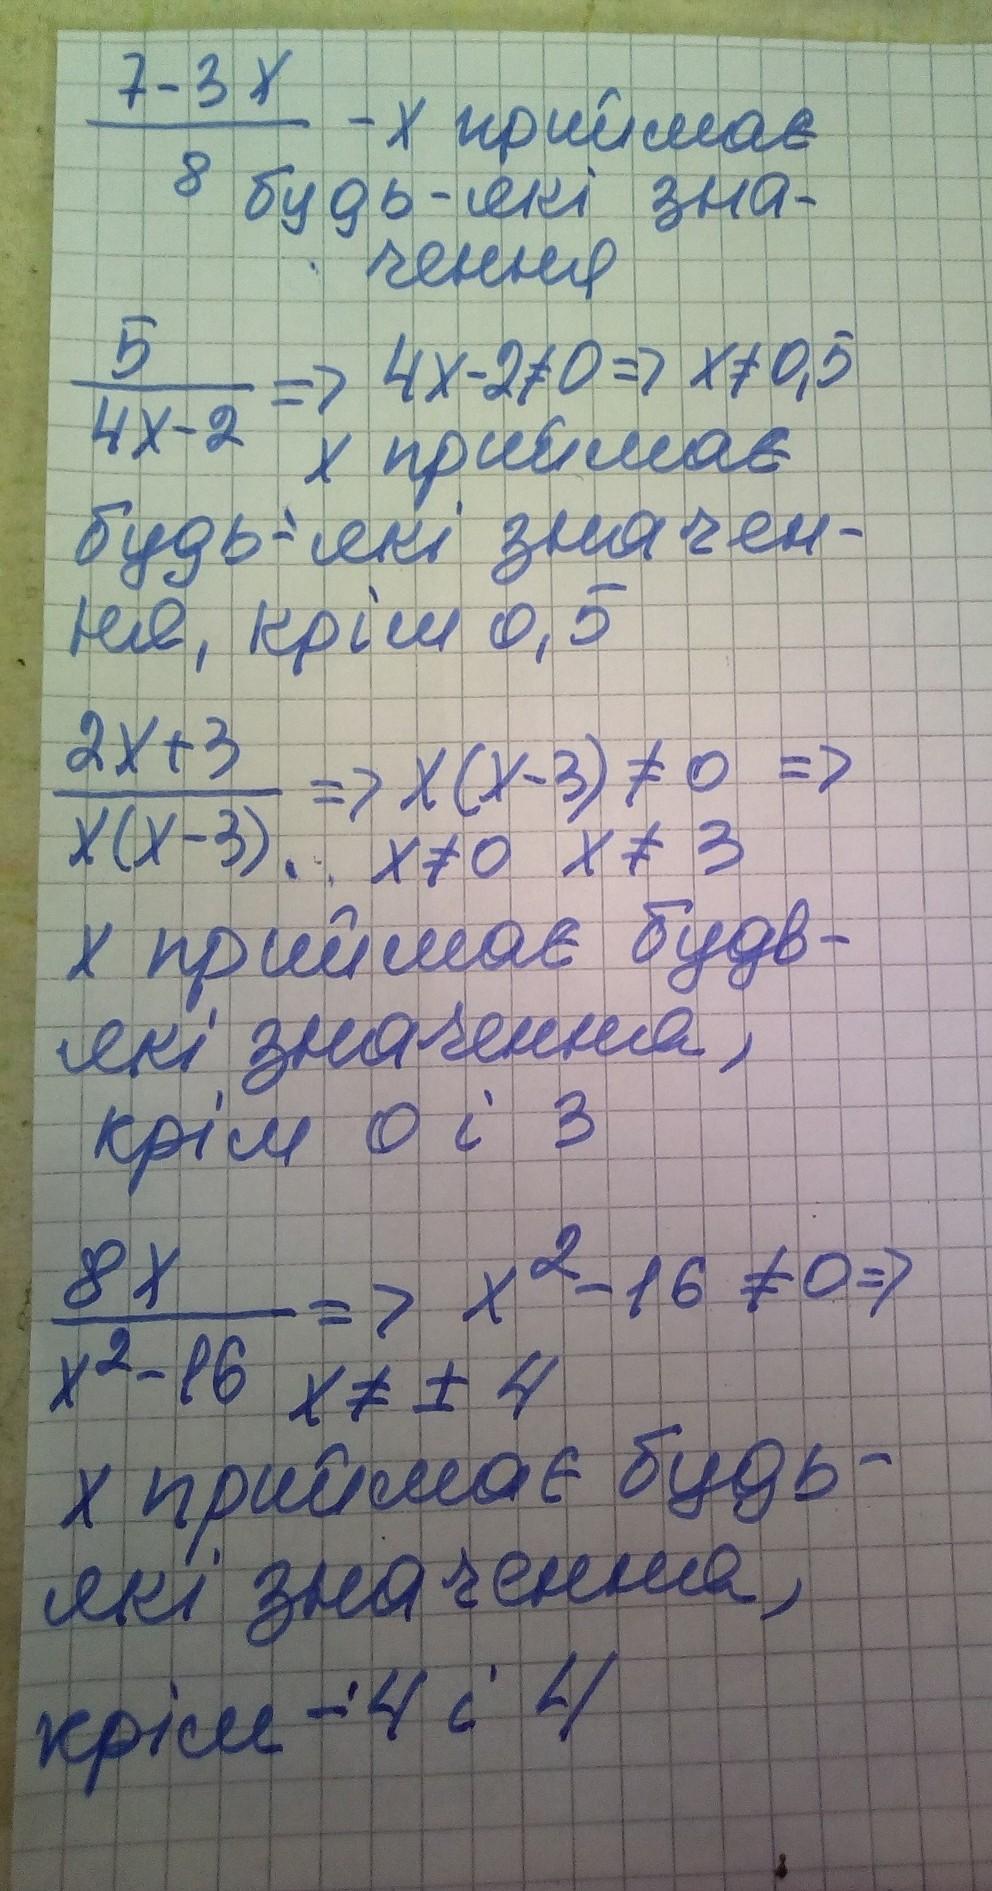 7-3x
- x приймає
8 будь-які зна-
чення
5
=> 4x-2≠0 => x≠0,5
4x-2 x приймає
будь-які значен-
ня, крім 0,5
2x+3
=> x(x-3)≠0 =>
x(x-3). x≠0 x≠3
x приймає будь-
які значення,
крім 0 і 3
8x
=> x²-16≠0 =>
x²-16 x≠±4
x приймає будь-
які значення,
крім -4 і 4